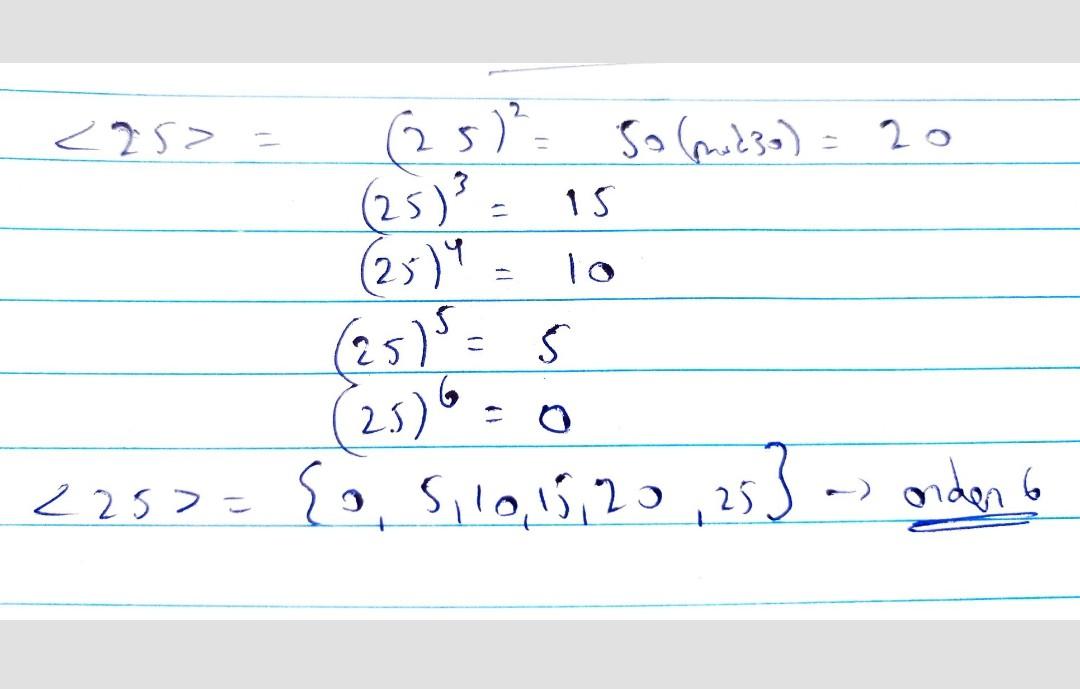 <25> = (25)² = 50 (mod 30) = 20
(25)³ = 15
(25)⁴ = 10
(25)⁵ = 5
(25)⁶ = 0
<25> = {0, 5, 10, 15, 20, 25} → orden 6